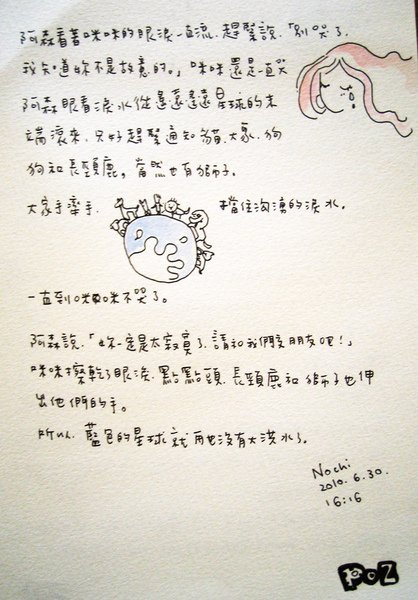 阿森看著咪咪的眼淚一直流.趕緊說.「別哭了.
我知道妳不是故意的。」咪咪還是一直哭
阿森眼看淚水從遙遠遙遠星球的末
端滾來.只好趕緊通知貓.大象.狗
狗和長頸鹿，當然也有獅子.
大家手牽手. 擋住洶湧的淚水.
一直到咪咪不哭了。
阿森說.「妳一定是太寂寞了.請和我們交朋友吧!」
咪咪擦乾了眼淚.點點頭.長頸鹿和獅子也伸
出他們的手。
所以.藍色的星球就再也沒有大洪水了.
Nochi
2010.6.30.
16:16
POZ